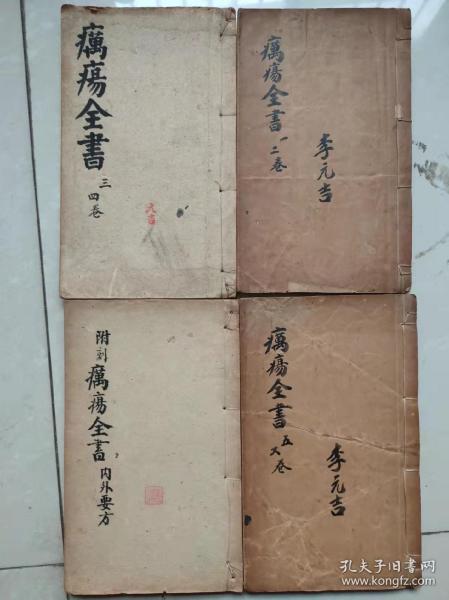 癘瘍全書
三
四卷
元吉
癘瘍全書
一
二卷
李元吉
附刻癘瘍全書
内外要方
癘瘍全書
五
六卷
李元吉
孔夫子旧书网
www.kongfz.com